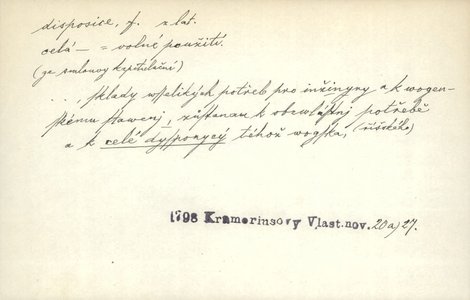 disposice, f. z lat.
celá — = volné použití.
(ze smlouvy kapitulační)
..., sklady wšelikých potřeb pro inžinyry a k wogen-
skému stawenj, zůstanau k obzwláštnj potřebě
a k celé dysponycý téhož wogska, (říšského)
1798 Krameriusovy Vlast.nov. 20a)27.